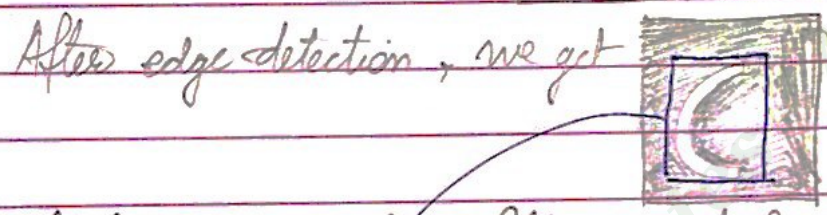 After edge detection, we get